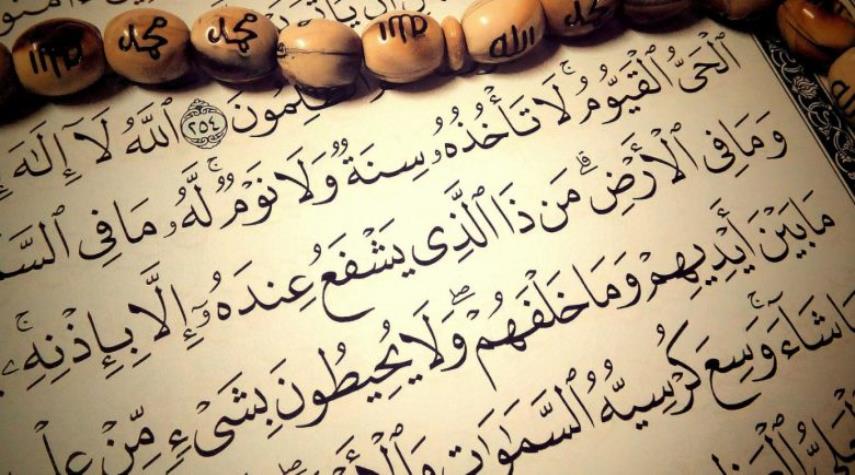 محمد محمد الله محمد
٢٥٤ ٱللَّهُ لَآ إِلَٰهَ
ٱلْحَىُّ ٱلْقَيُّومُ ۚ لَا تَأْخُذُهُۥ سِنَةٌ وَلَا نَوْمٌ ۚ لَّهُۥ مَا فِى
وَمَا فِى ٱلْأَرْضِ ۗ مَن ذَا ٱلَّذِى يَشْفَعُ عِندَهُۥٓ إِلَّا بِإِذْنِهِۦ ۚ
مَا بَيْنَ أَيْدِيهِمْ وَمَا خَلْفَهُمْ ۖ وَلَا يُحِيطُونَ بِشَىْءٍ مِّنْ
شَآءَ ۚ وَسِعَ كُرْسِيُّهُ ٱلسَّمَٰوَٰتِ